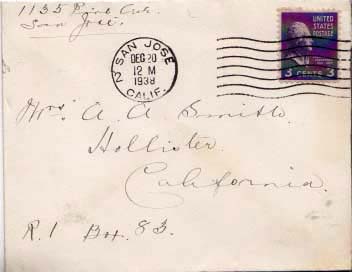 1135
San Jose.
SAN JOSE
DEC 20
12 M
1938
CALIF.
2
UNITED
STATES
POSTAGE
3 CENTS 3
Mrs. A. A. Smith.
Hollister
California.
R. 1 Box. 83.